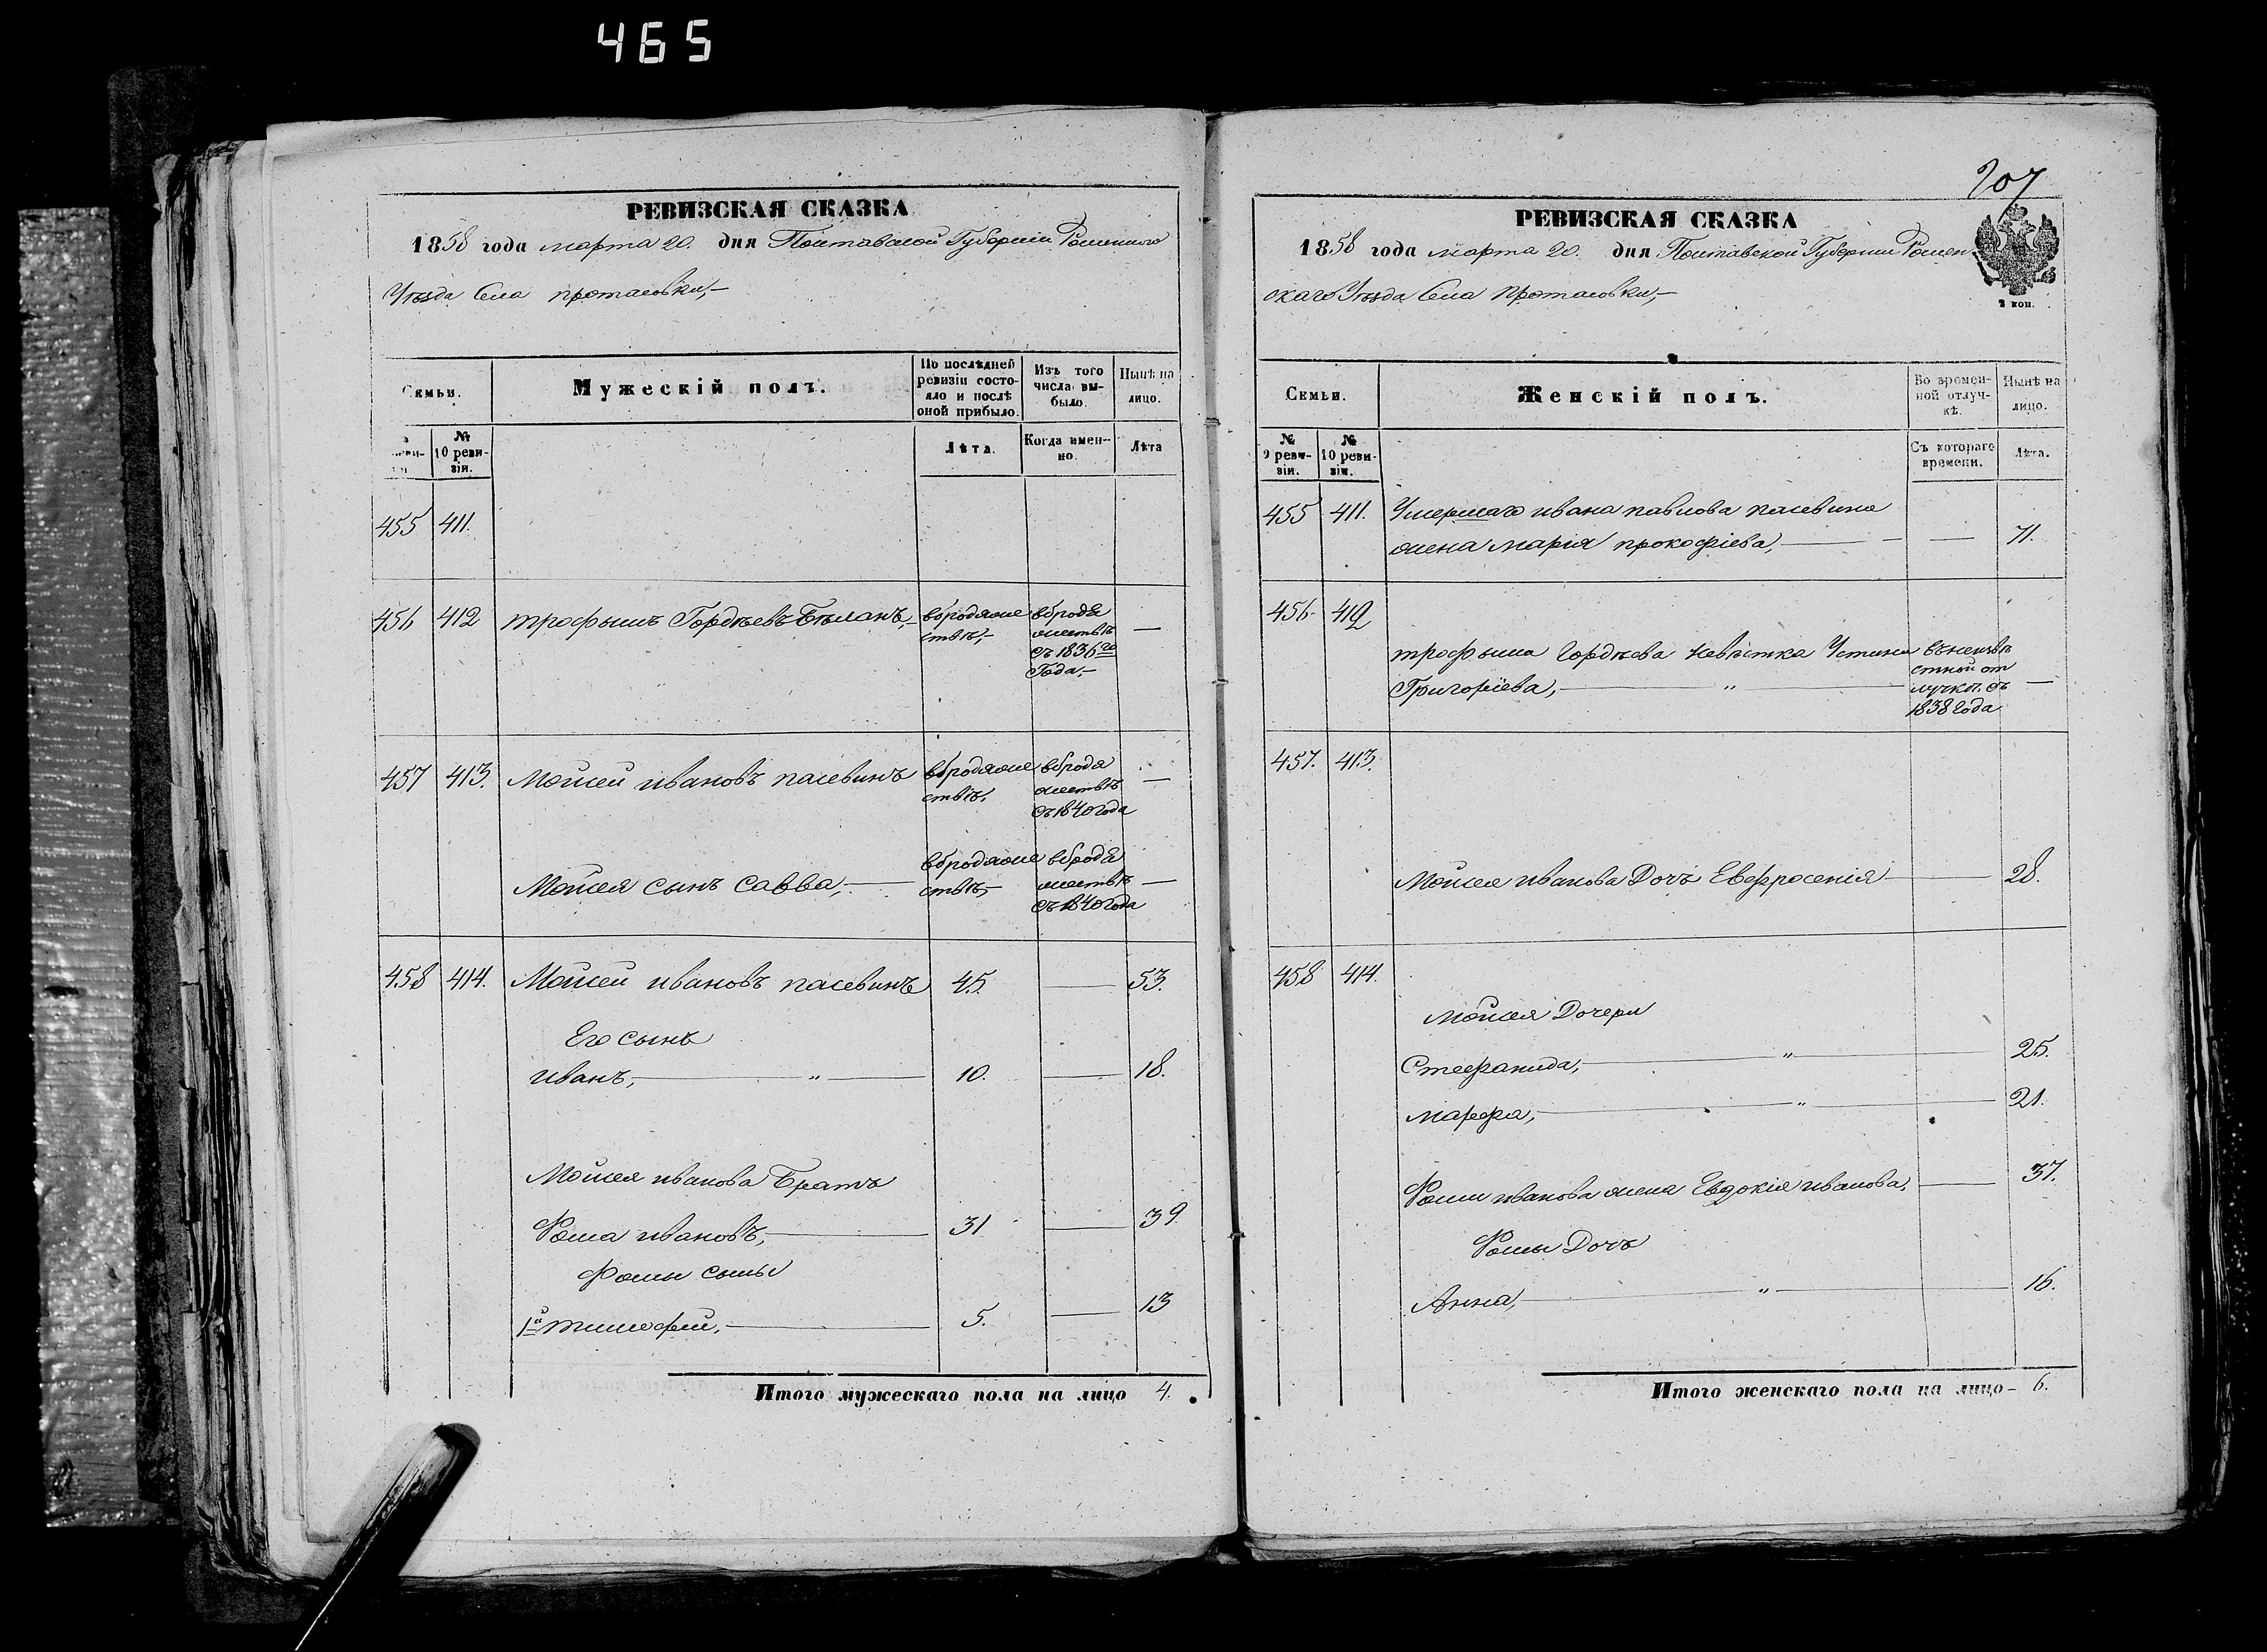 465
РЕВИЗСКАЯ СКАЗКА
1858 года марта 20. дня Полтавской Губерніи Роменнаго
Уѣзда Села протасовки,-
Семьи.
Мужескій полъ.
По послѣдней ревизіи состо-
яло и послѣ
оной прибыло.
Изъ того
числа вы-
было.
Нынѣ на
лицо.
№
10 реви-
зіи.
Лѣта.
Когда имен-
но.
Лѣта
455 411.
456 412 трофимъ Гордѣевъ Бѣланъ,- вбродяже вбродя —
ствѣ,- жествѣ
съ 1836го
Года,-
457 413. Мойсей ивановъ пасевинъ вбродяже вбродя —
ствѣ, жествѣ
съ 1840 года
Мойсея сынъ Савва,— вбродяже вбродя —
ствѣ,- жествѣ
съ 1840 года
458 414. Мойсей ивановъ пасевинъ 45. — 53.
Его сынъ
иванъ, — „ — 10. — 18.
Мойсея иванова Братъ
Фома ивановъ, — 31 — 39.
Фомы сыны
1й тимофей, — 5. — 13
Итого мужескаго пола на лицо 4.
207
РЕВИЗСКАЯ СКАЗКА
1858 года марта 20. дня Полтавской Губерніи Ромен-
скаго Уѣзда Села протасовки,-
2 коп.
Семьи.
Женскій полъ.
Во времен-
ной отлуч-
кѣ.
Нынѣ на
лицо.
№
9 реви-
зіи.
№
10 реви-
зіи.
Съ котораго
времени.
Лѣта.
455 411. Умершаго ивана павлова пасевина
жена марія прокофіева, — — 71.
456 412
трофима гордѣева невѣстка Устинія въ неизвѣ
Григоріева, — „ — стной от
лучкѣ съ —
1838 года
457. 413.
Мойсея иванова Дочь Евфросенія — 28.
458 414.
Мойсея Дочери
Стефанида, — „ — 25.
марфа, — „ — 21.
Фомы иванова жена Евдокія иванова, — 37.
Фомы Дочь
Анна, — „ — 16.
Итого женскаго пола на лицо - 6.